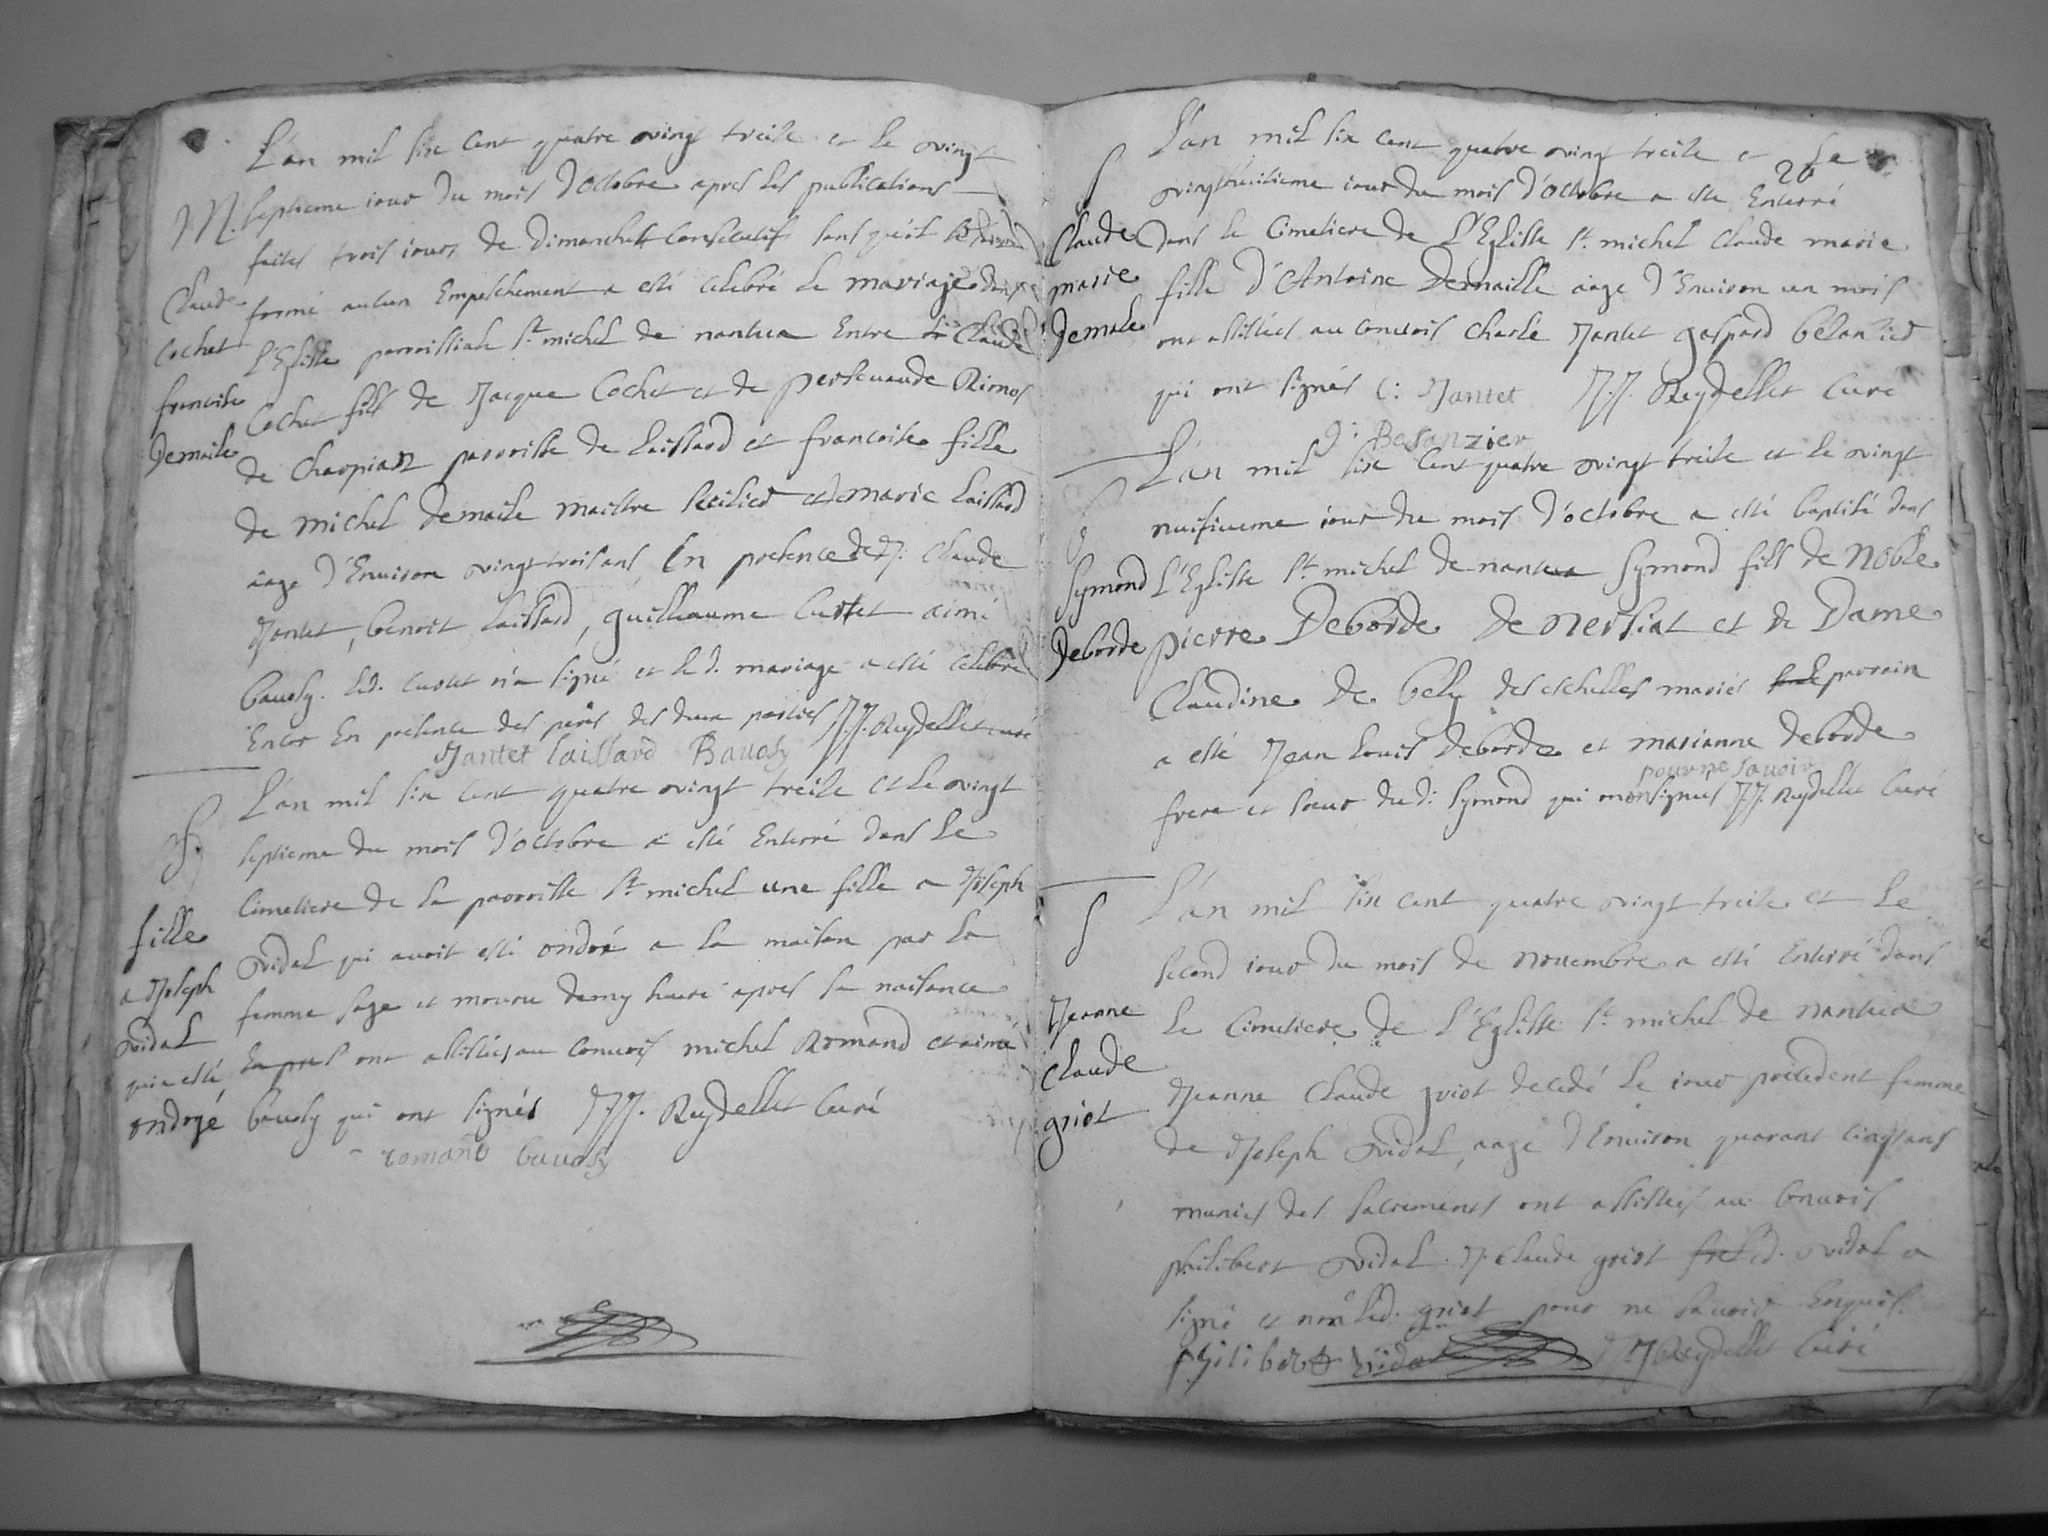 L'an mil six cent quatre vingt treise et le vingt
M. septieme iour du mois d'octobre apres les publications
faites trois iours de dimanches consecutifs sans qu'il se
Claude formé aucun Empeschement a esté celebré le mariage dans
Cochet L'Eglisse parroissiale St michel de nantua Entre Claude
francoise Cochet fils de Jacque Cochet et de pernevaude
Demaile de Charpiat parroisse de Laissard et francoise fille
de michel Demaile maistre et marie Laissard
aage d'Enuiron vingt trois ans En presence de Claude
Jantet, benoit Laissard, guilleaume Curtet aimé
bauoly. led. Curtet n'a signé et le d. mariage a esté celebré
Encor En presence des peres des deux parties J.J. Reydellet curé
Jantet Laissard Bauoly
L'an mil six cent quatre vingt treise et le vingt
S. septieme du mois d'octobre a esté Enterré dans le
Cimetiere de la parroisse St michel une fille a Joseph
fille vidal qui avoit esté ondoié a la maison par la
a Joseph femme sage et mourru demy heure apres sa naisance
vidal ont assistés au conuois michel Romand et aimé
qui a esté
ondoyé bauoly qui ont signés J.J. Reydellet Curé
romand bauoly
26
L'an mil six cent quatre vingt treise et Le
S vingthuitieme iour du mois d'octobre a este Enterré
Claude dans le Cimetiere de L'Eglisse St michel Claude marie
marie fille d'Antoine Demaille aage d'Enuiron un mois
demale ont assistés au conuois Charle Jantet gaspard belanzier
qui ont signés C: Jantet J.J. Reydellet Curé
g: Besanzier
L'an mil six cent quatre vingt treise et le vingt
neufuieme iour du mois d'octobre a esté baptisé dans
Symond L'Eglisse St michel de nantua Symond fils de Noble
deborde pierre Deborde de Mersiat et de Dame
Claudine de bely des eschelles mariés parrain
a esté Jean Louis deborde et marianne deborde
pour ne sauoir
frere et soeur du d: Symond qui n'on signés J.J. Reydellet Curé
L'an mil six cent quatre vingt treise et Le
S second iour du mois de novembre a esté Enterré dans
Le Cimetiere de L'Eglisse St michel de nantua
Jeanne
Claude Jeanne Claude griot decedé le iour precedent femme
griot de Joseph vidal, aage d'Enuiron quarant cinq ans
munies des sacrements ont assistés au Conuois
philibert vidal. J. Claude griot led. vidal a
signé et non led. griot pour ne sauoir Enquis.
philibert vidal J.J. Reydellet Curé